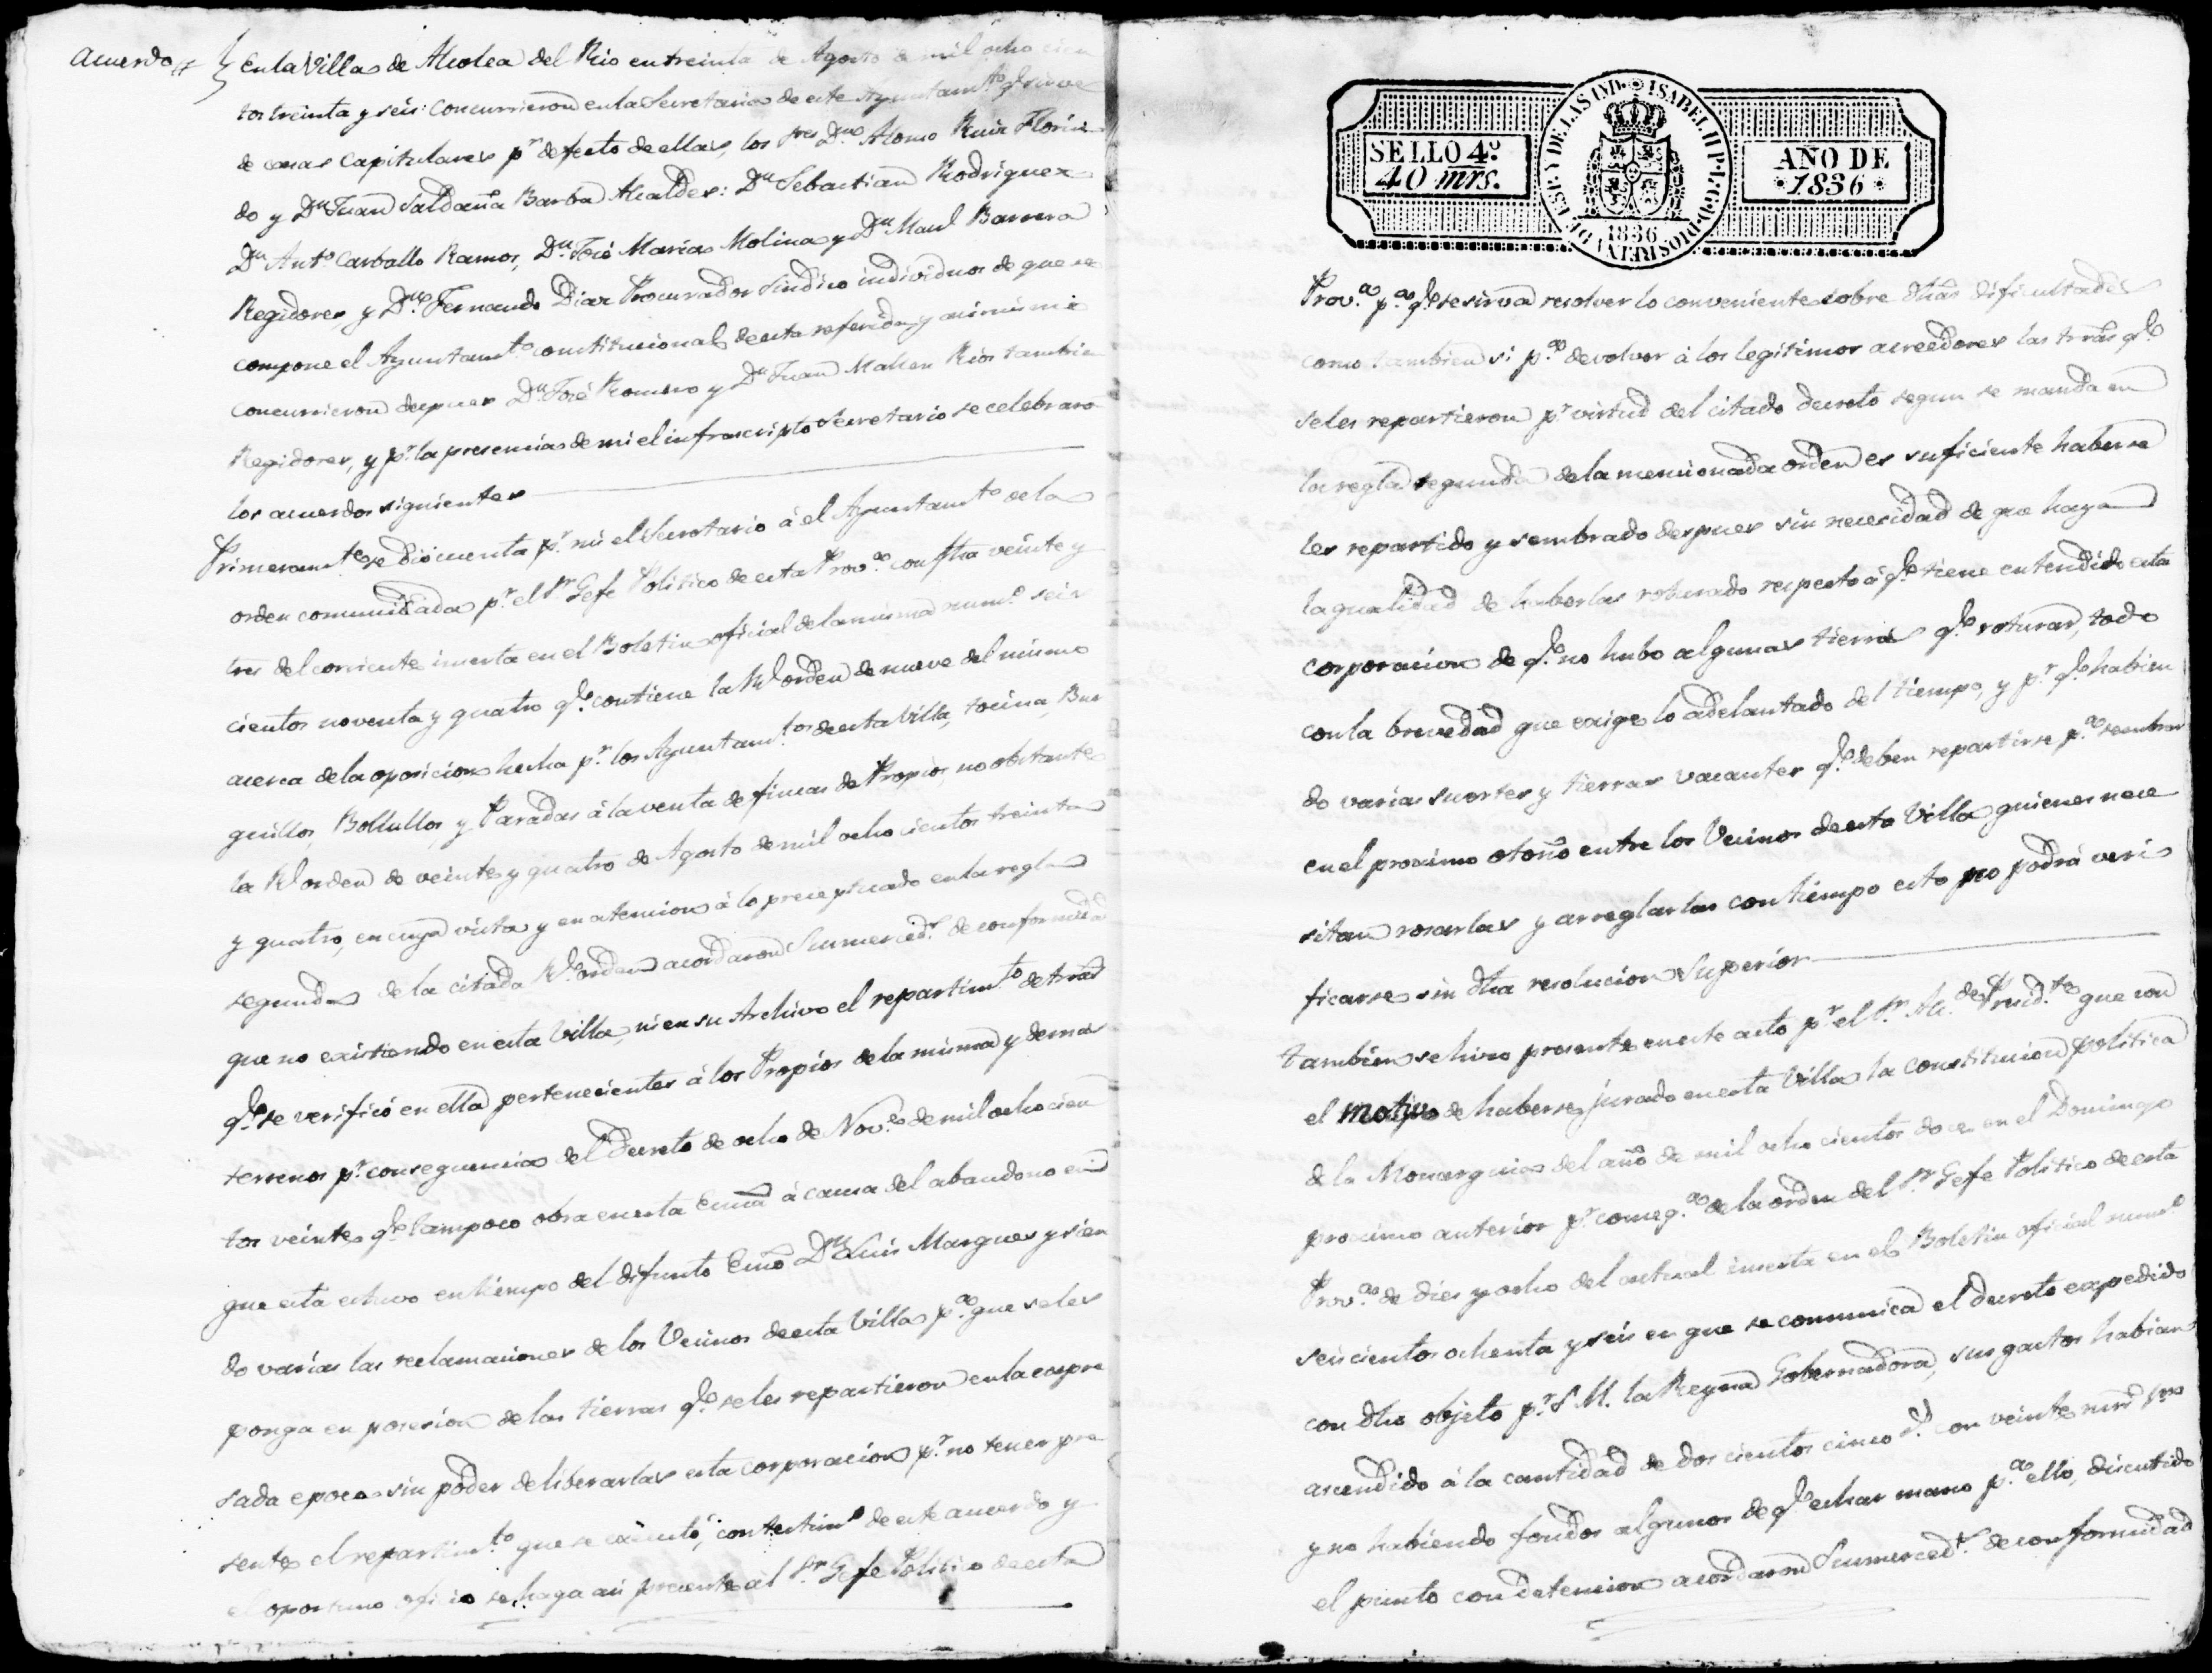 Acuerdo
En la Villa de Alcolea del Rio en treinta de Agosto de mil ocho cien
tos treinta y seis: concurrieron en la Secretaria de este Ayuntam.to q.e sirve
de casas Capitulares p.r defecto de ellas, los S.res D.n Alonso Ruiz Florin
do y D.n Juan Saldaña Barba Alcaldes: D.n Sebastian Rodriguez
D.n Ant.o Carballo Ramos, D.n José Maria Molina y D.n Man.l Barrera
Regidores, y D.n Fernando Diaz Procurador Sindico individuos de que se
compone el Ayuntam.to constitucional de esta referida y asimismo
concurrieron despues D.n José Romero y D.n Juan Rios tambie
Regidores, y p.r la presencia de mi el infrascripto Secretario se celebraro
los acuerdos siguientes
Primeram.te se dió cuenta p.r mi el Secretario á el Ayuntam.to de la
orden comunicada p.r el S.r Gefe Politico de esta Prov.a con fha veinte y
tres del corriente inserta en el Boletin oficial de la misma num.o seis
cientos noventa y quatro q.e contiene la R.l orden de nueve del mismo
acerca de la oposicion hecha p.r los Ayuntam.tos de esta Villa, tocina, Bur
guillos, Bollullos, y Paradas á la venta de fincas de Propios, no obstante
la R.l orden de veinte y quatro de Agosto de mil ocho cientos treinta
y quatro, en cuya vista y en atencion á lo preceptuado en la regla
segunda de la citada R.l orden acordaron Sumerced.s de conformidad
que no existiendo en esta Villa, ni en su Archivo el repartim.to de trras
q.e se verificó en ella pertenecientes á los Propios de la misma y demas
terrenos p.r consequencia del Decreto de ocho de Nov.e de mil ocho cien
tos veinte q.e tampoco obra en esta Escnia á causa del abandono en
que esta estuvo en tiempo del difunto Escno D.n Luis Marques y sien
do varias las reclamaciones de los Vecinos de esta Villa p.a que se les
ponga en posesion de las tierras q.e se les repartieron en la expre
sada epoca sin poder deliberarlas esta corporacion p.r no tener pre
sente el repartim.to que se executó, con testim.o de este acuerdo y
el oportuno oficio se haga asi presente al S.r Gefe Politico de esta
SELLO 4.º
40 mrs.
ISABEL II P. L. G. D. DIOS REINA DE ESP. Y DE LAS IND.
1836
AÑO DE
1836
Prov.a p.a q.e se sirva resolver lo conveniente sobre dhas dificultades
como tambien si p.a devolver á los legitimos acreedores las trras q.e
se les repartieron p.r virtud del citado decreto segun se manda en
la regla segunda de la mencionada orden es suficiente haberse
les repartido y sembrado despues sin necesidad de que haya
la qualidad de haberlas roturado respecto á q.e tiene entendido esta
corporacion de q.e no hubo algunas tierras q.e roturar, todo
con la brevedad que exige lo adelantado del tiempo, y p.r q.e habien
do varias suertes y tierras vacantes q.e deben repartirse p.a sembrar
en el proximo otoño entre los Vecinos de esta Villa quienes nece
sitan rosarlas y arreglarlas con tiempo esto no podrá veri
ficarse sin dha resolucion Superior
tambien se hizo presente en este acto p.r el S.r Alc.de Presid.te que con
el motivo de haberse jurado en esta Villa la Constitucion politica
de la Monarquia del año de mil ocho cientos doce en el Domingo
proximo anterior p.r conseq.a de la orden del S.r Gefe Politico de esta
Prov.a de dies y ocho del actual inserta en el Boletin oficial num.o
seiscientos ochenta y seis en que se comunica el decreto expedido
con dho objeto p.r S. M. la Reyna Gobernadora, sus gastos habian
ascendido á la cantidad de dos cientos cinco r.s con veinte mrs
y no habiendo fondos algunos de q.e echar mano p.a ello, discutido
el punto con detencion acordaron Sumerced.s de conformidad